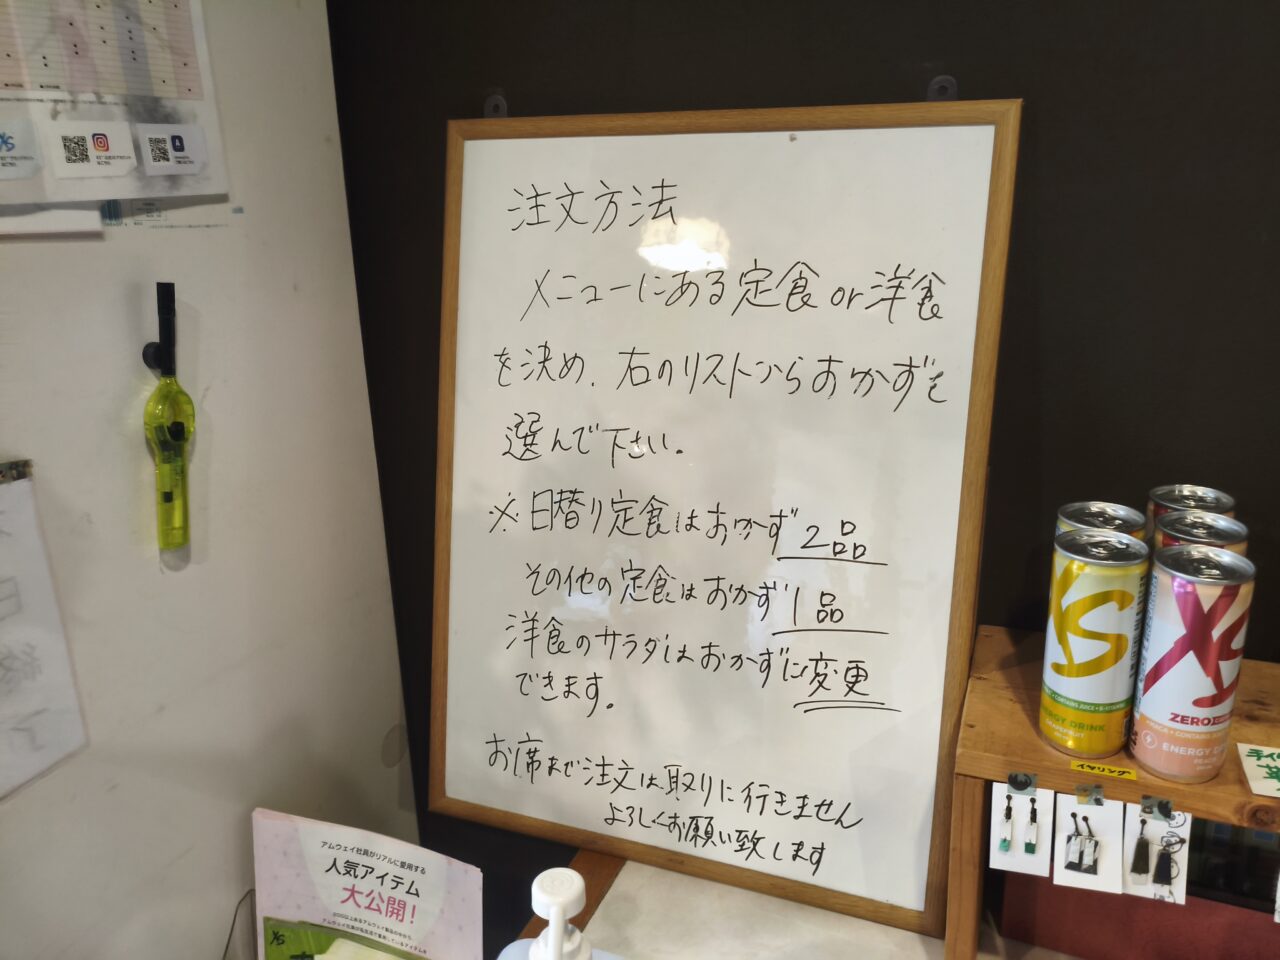 注文方法
メニューにある定食or洋食
を決め、右のリストからおかずを
選んで下さい。
※日替り定食はおかず2品
その他の定食はおかず1品
洋食のサラダはおかずに変更
できます。
お席まで注文は取りに行きません
よろしくお願い致します
アムウェイ社員がリアルに愛用する
人気アイテム
大公開!
XS
XS
ENERGY DRINK
XS
ZERO
ENERGY
イヤリング